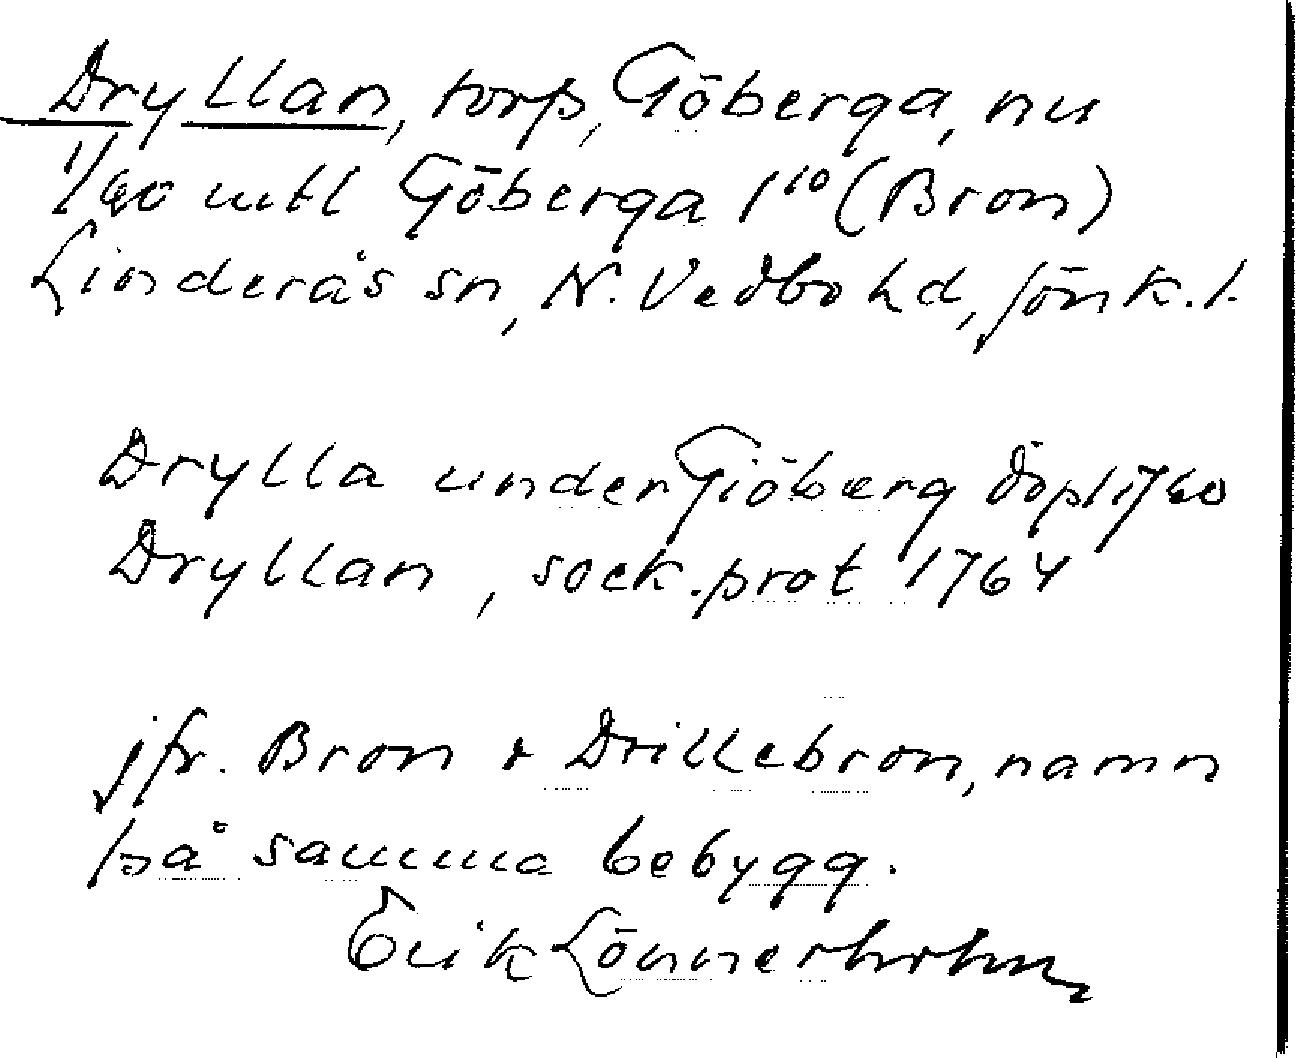 Dryllan, torp, Göberga, nu
1/40 mtl Göberga 1¹⁰ (Bron)
Linderås sn, N. Vedbo hd, Jönk. l.
Drylla under Giöberg dopl 1760
Dryllan, sock.prot 1764
jfr. Bron & Drillebron, namn
på samma bebygg.
Erik Lönnerholm